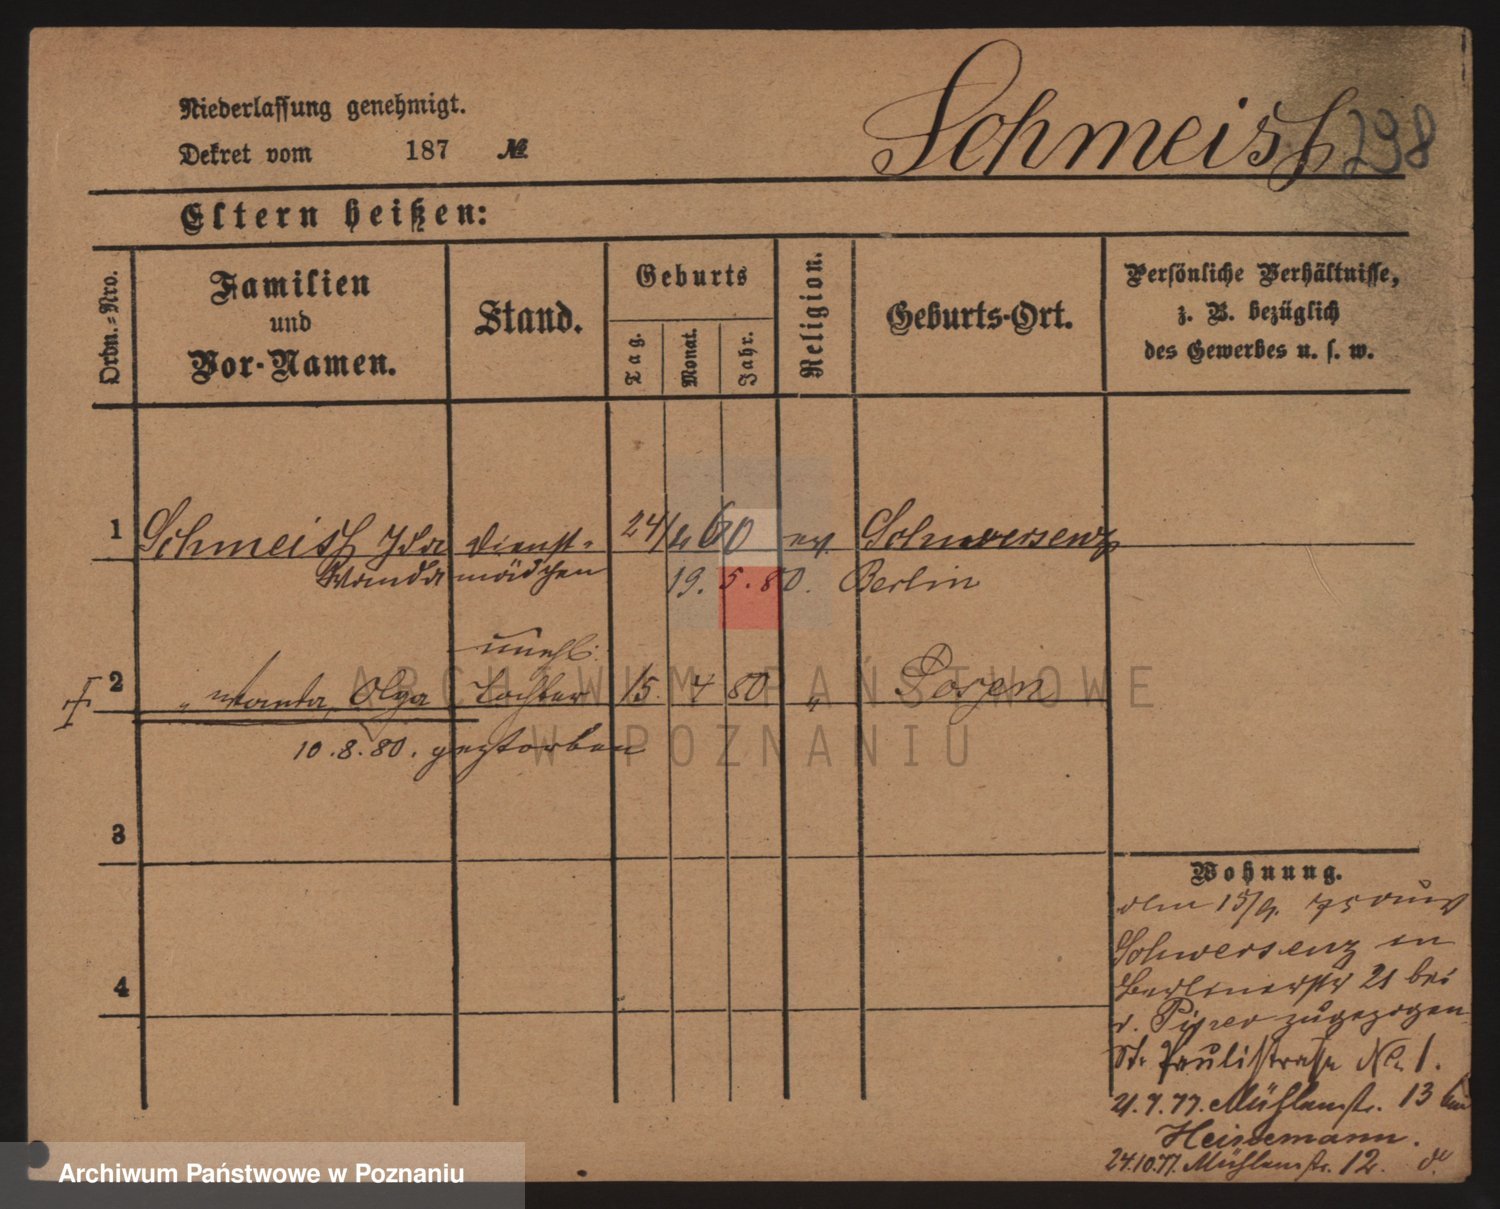 Niederlassung genehmigt.
Dekret vom 187 №
Schmeiss 238
Eltern heißen:
Ordn.-Nro.
Familien und Vor-Namen.
Stand.
Geburts
Tag.
Monat.
Jahr.
Religion.
Geburts-Ort.
Persönliche Verhältnisse,
z. B. bezüglich
des Gewerbes u. s. w.
1 Schmeiss Ida Dienst- 24/4 60 ev. Schwersenz
Wanda mädchen 19. 5. 80. Berlin
unehl.
2 " Wanda, Olga Tochter 15. 4 80 " Posen
10. 8. 80. gestorben
3
4
Wohnung.
am 15/9. 75 aus
Schwersenz in
Berlinerstr 21 bei
zugezogen
St. Paulistrasse No. 1.
21.7.77. Mühlenstr. 13 bei
Heinemann.
24.10.77. Mühlenstr. 12.
ARCHIWUM PAŃSTWOWE
W POZNANIU
Archiwum Państwowe w Poznaniu